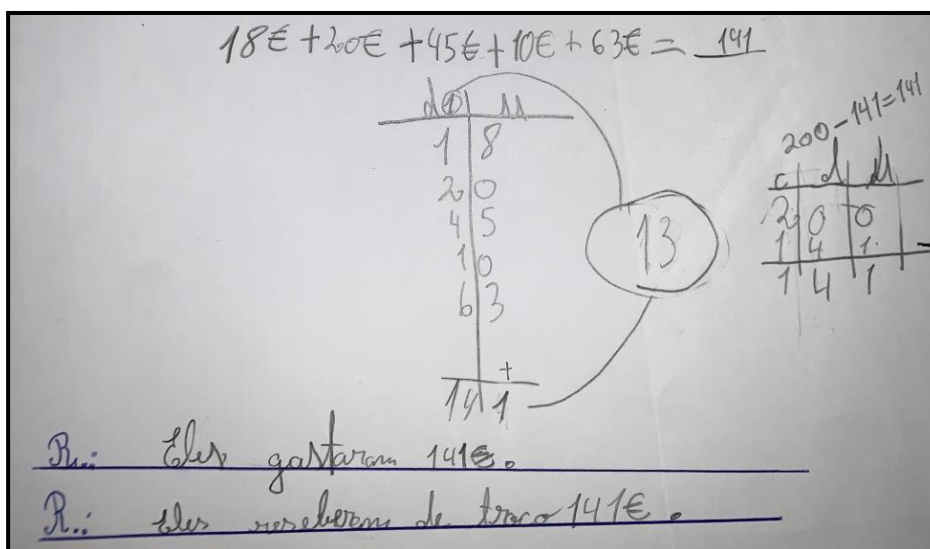 18€ + 20€ + 45€ + 10€ + 63€ = 141
d u
1 8
2 0
4 5
1 0
6 3
+
14 1
13
200 - 141 = 141
c d u
2 0 0
1 4 1 -
1 4 1
R.: Eles gastaram 141€.
R.: Eles reseberam de troco 141€.